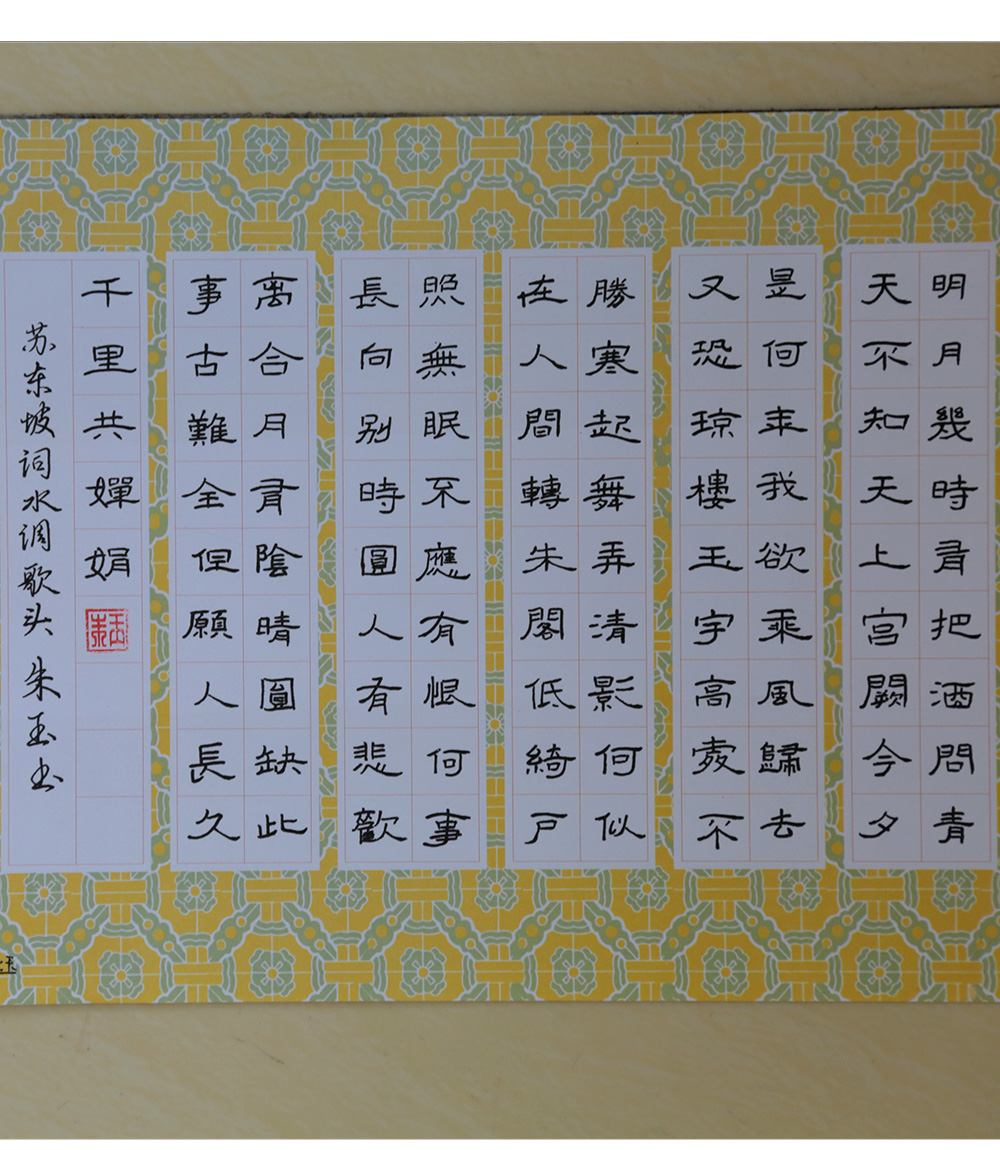 明月幾時有把酒問青
天不知天上宫闕今夕
是何年我欲乘風歸去
又恐琼樓玉宇高處不
勝寒起舞弄清影何似
在人間轉朱閣低綺户
照無眠不應有恨何事
長向别時圓人有悲歡
离合月有陰晴圓缺此
事古難全但願人長久
千里共嬋娟
朱玉
苏东坡词水调歌头 朱玉书